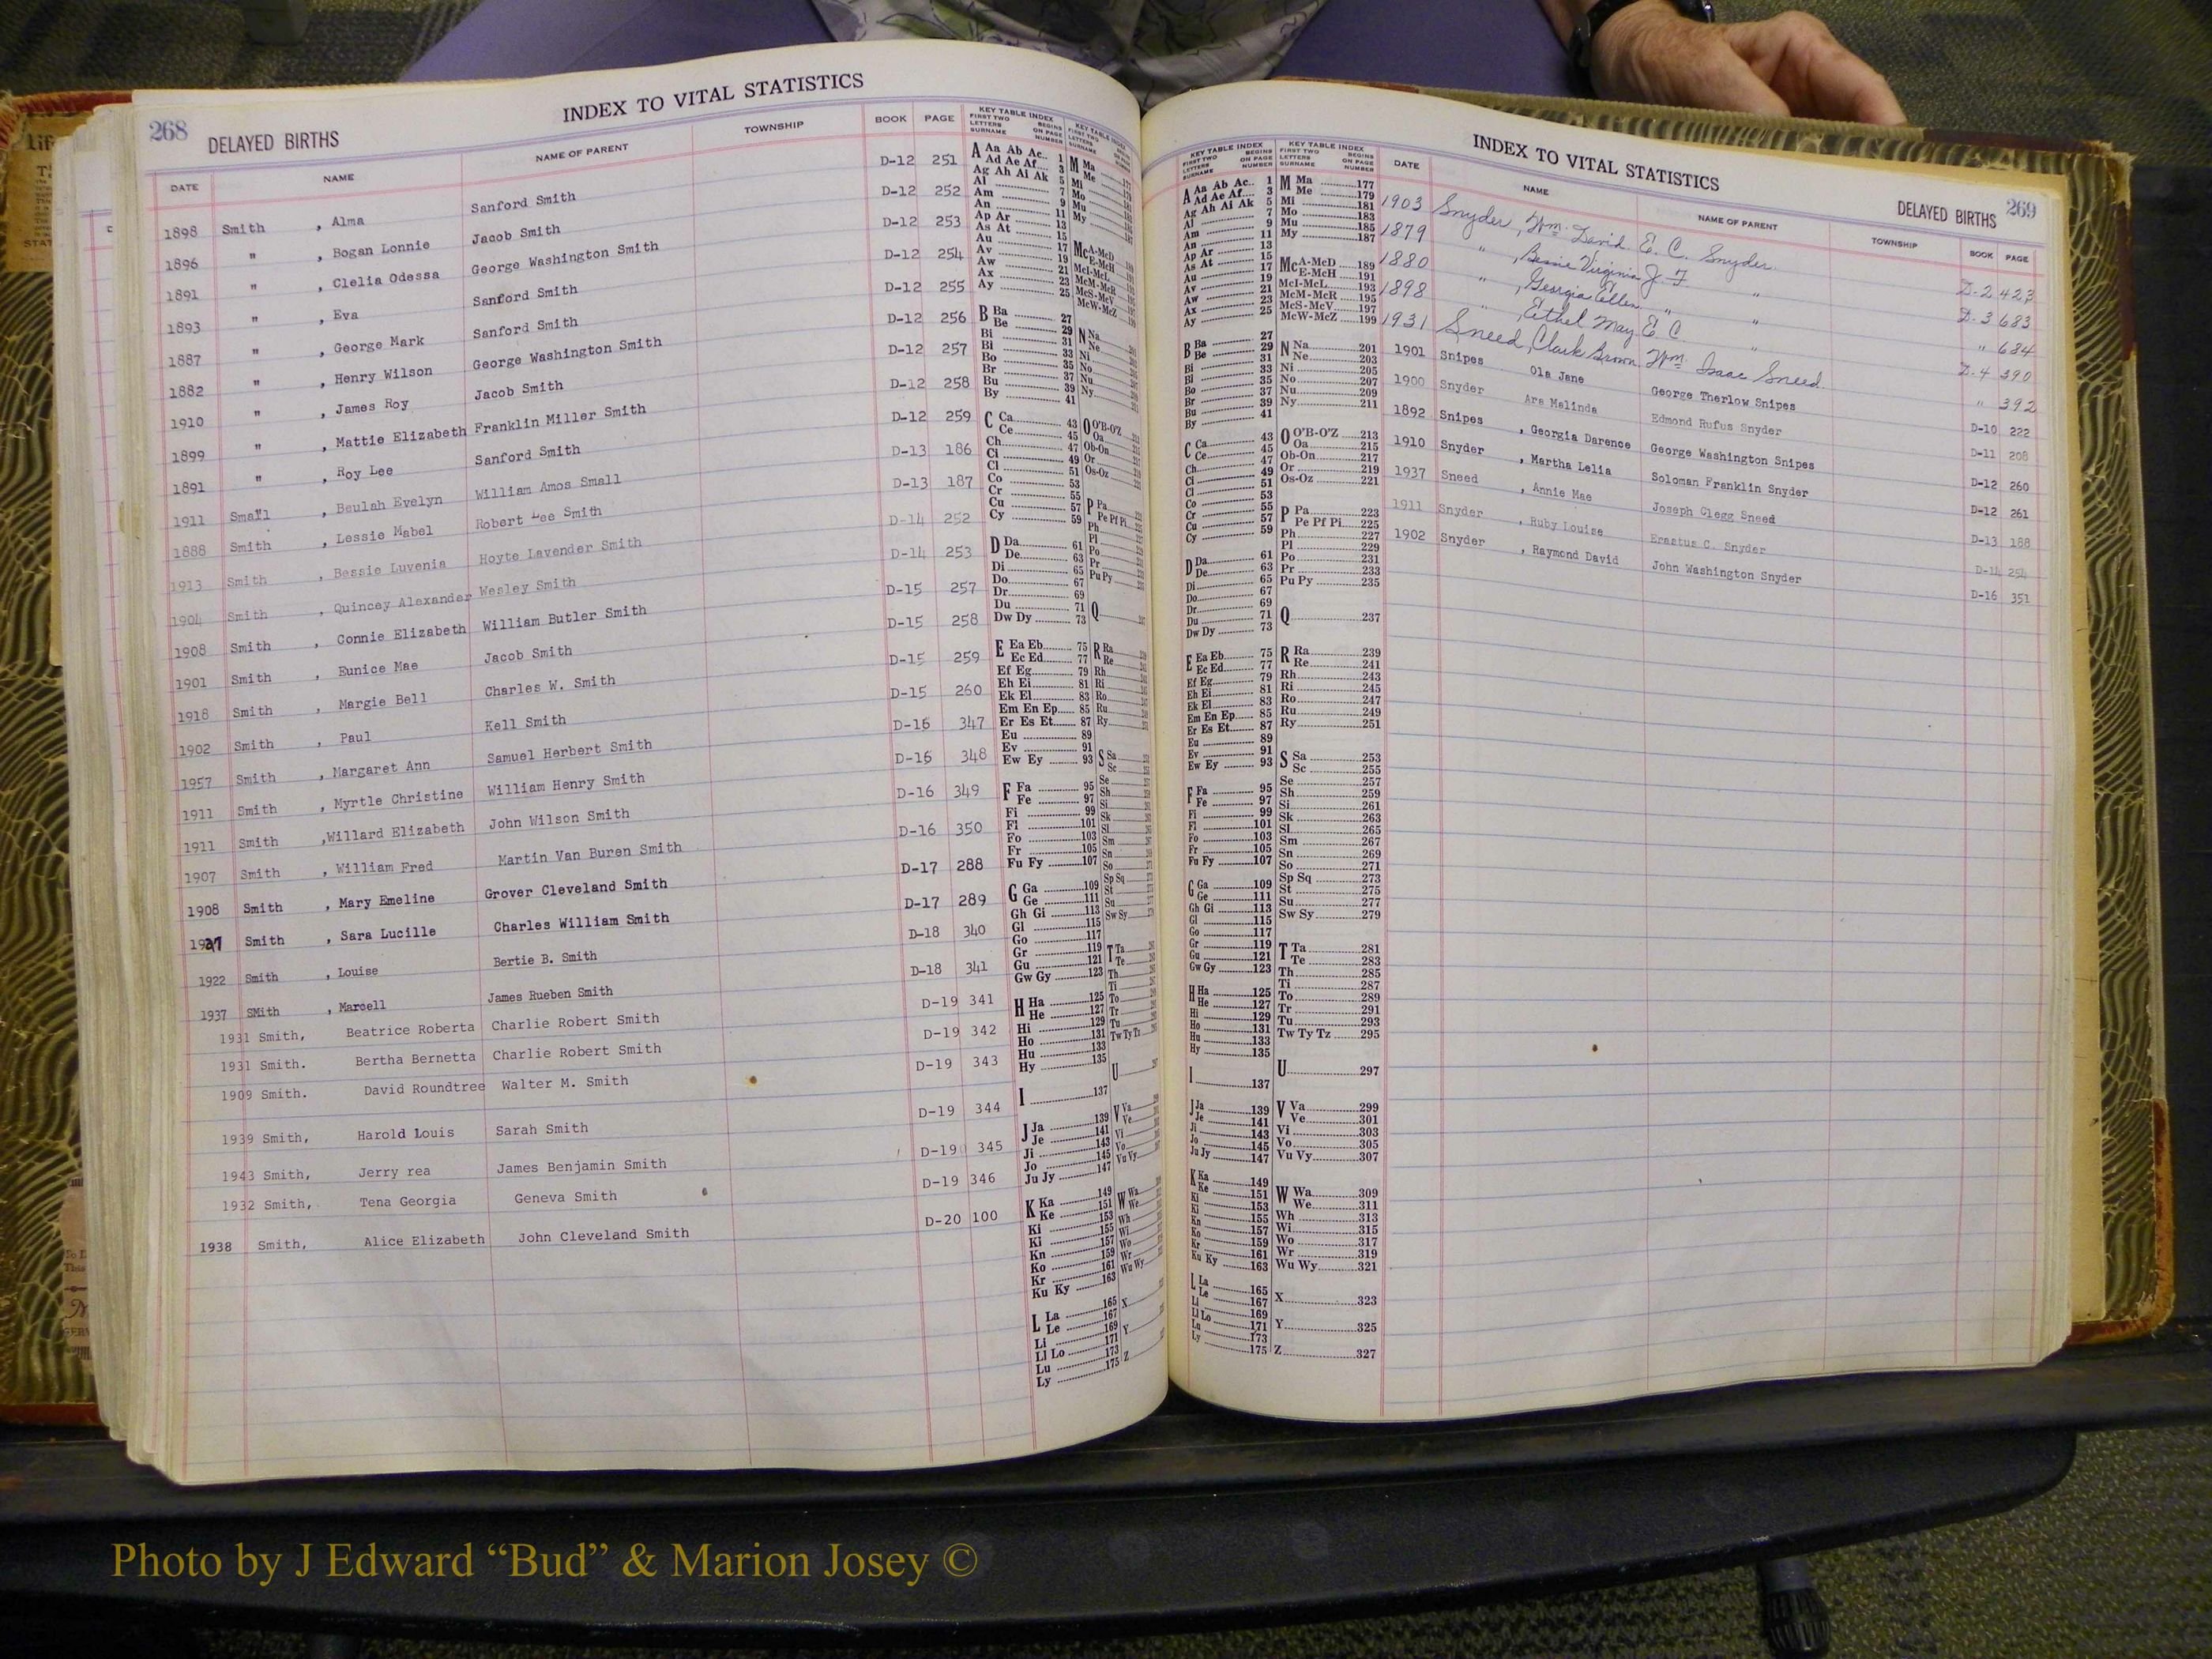 268 DELAYED BIRTHS
INDEX TO VITAL STATISTICS
DATE NAME NAME OF PARENT TOWNSHIP BOOK PAGE
1898 Smith , Alma Sanford Smith D-12 251
1896 " , Bogan Lonnie Jacob Smith D-12 252
1891 " , Clelia Odessa George Washington Smith D-12 253
1893 " , Eva Sanford Smith D-12 254
1887 " , George Mark Sanford Smith D-12 255
1882 " , Henry Wilson George Washington Smith D-12 256
1910 " , James Roy Jacob Smith D-12 257
1899 " , Mattie Elizabeth Franklin Miller Smith D-12 258
1891 " , Roy Lee Sanford Smith D-12 259
1911 Small , Beulah Evelyn William Amos Small D-13 186
1888 Smith , Lessie Mabel Robert Lee Smith D-13 187
1913 Smith , Bessie Luvenia Hoyte Lavender Smith D-14 252
1904 Smith , Quincey Alexander Wesley Smith D-14 253
1908 Smith , Connie Elizabeth William Butler Smith D-15 257
1901 Smith , Eunice Mae Jacob Smith D-15 258
1918 Smith , Margie Bell Charles W. Smith D-15 259
1902 Smith , Paul Kell Smith D-15 260
1957 Smith , Margaret Ann Samuel Herbert Smith D-16 347
1911 Smith , Myrtle Christine William Henry Smith D-16 348
1911 Smith ,Willard Elizabeth John Wilson Smith D-16 349
1907 Smith , William Fred Martin Van Buren Smith D-16 350
1908 Smith , Mary Emeline Grover Cleveland Smith D-17 288
1927 Smith , Sara Lucille Charles William Smith D-17 289
1922 Smith , Louise Bertie B. Smith D-18 340
1937 SMith , Marcell James Rueben Smith D-18 341
1931 Smith, Beatrice Roberta Charlie Robert Smith D-19 341
1931 Smith. Bertha Bernetta Charlie Robert Smith D-19 342
1909 Smith. David Roundtree Walter M. Smith D-19 343
1939 Smith, Harold Louis Sarah Smith D-19 344
1943 Smith, Jerry rea James Benjamin Smith D-19 345
1932 Smith, Tena Georgia Geneva Smith D-19 346
1938 Smith, Alice Elizabeth John Cleveland Smith D-20 100
INDEX TO VITAL STATISTICS
DELAYED BIRTHS 269
KEY TABLE INDEX
FIRST TWO LETTERS SURNAME BEGINS ON PAGE NUMBER
A Aa Ab Ac 1
Ad Ae Af 3
Ag Ah Ai Ak 5
Al 7
Am 9
An 11
Ap Ar 13
As At 15
Au 17
Av 19
Aw 21
Ax 23
Ay 25
B Ba 27
Be 29
Bi 31
Bl 33
Bo 35
Br 37
Bu 39
By 41
C Ca 43
Ce 45
Ch 47
Ci 49
Cl 51
Co 53
Cr 55
Cu 57
Cy 59
D Da 61
De 63
Di 65
Do 67
Dr 69
Du 71
Dw Dy 73
E Ea Eb 75
Ec Ed 77
Ef Eg 79
Eh Ei 81
Ek El 83
Em En Ep 85
Er Es Et 87
Eu 89
Ev 91
Ew Ey 93
F Fa 95
Fe 97
Fi 99
Fl 101
Fo 103
Fr 105
Fu Fy 107
G Ga 109
Ge 111
Gh Gi 113
Gl 115
Go 117
Gr 119
Gu 121
Gw Gy 123
H Ha 125
He 127
Hi 129
Ho 131
Hu 133
Hy 135
I 137
J Ja 139
Je 141
Ji 143
Jo 145
Ju Jy 147
K Ka 149
Ke 151
Ki 153
Kn 157
Ko 159
Kr 161
Ku Ky 163
L La 165
Le 167
Li 169
Ll Lo 171
Lu 173
Ly 175
M Ma 177
Me 179
Mi 181
Mo 183
Mu 185
My 187
McA-McD 189
E-McH 191
McI-McL 193
McM-McR 195
McS-McV 197
McW-McZ 199
N Na 201
Ne 203
Ni 205
No 207
Nu 209
Ny 211
O O'B-O'Z 213
Oa 215
Ob-On 217
Or 219
Os-Oz 221
P Pa 223
Pe Pf Pi 225
Ph 227
Pl 229
Po 231
Pr 233
Pu Py 235
Q 237
R Ra 239
Re 241
Rh 243
Ri 245
Ro 247
Ru 249
Ry 251
S Sa 253
Sc 255
Se 257
Sh 259
Si 261
Sk 263
Sl 265
Sm 267
Sn 269
So 271
Sp Sq 273
St 275
Su 277
Sw Sy 279
T Ta 281
Te 283
Th 285
Ti 287
To 289
Tr 291
Tu 293
Tw Ty Tz 295
U 297
V Va 299
Ve 301
Vi 303
Vo 305
Vu Vy 307
W Wa 309
We 311
Wh 313
Wi 315
Wo 317
Wr 319
Wu Wy 321
X 323
Y 325
Z 327
DATE NAME NAME OF PARENT TOWNSHIP BOOK PAGE
1903 Snyder, Wm. David E. C. Snyder D-2 423
1879 " , Bessie Virginia J. F. " D-3 683
1880 " , Georgia Ellen " " " 684
1898 " , Eithel May E C " D-4 390
1931 Sneed, Clark Brown Wm. Isaac Sneed " 392
1901 Snipes Ola Jane George Therlow Snipes D-10 222
1900 Snyder Ara Malinda Edmond Rufus Snyder D-11 208
1892 Snipes , Georgia Darence George Washington Snipes D-12 260
1910 Snyder , Martha Lelia Soloman Franklin Snyder D-12 261
1937 Sneed , Annie Mae Joseph Clegg Sneed D-13 188
1911 Snyder , Ruby Louise Erastus C. Snyder D-14 254
1902 Snyder , Raymond David John Washington Snyder D-16 351
Photo by J Edward “Bud” & Marion Josey ©